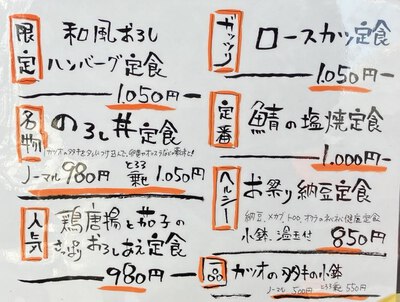 限定
和風おろし
ハンバーグ定食
1,050円
名物
のろし丼定食
ノーマル 980円 とろろ乗せ 1,050円
人気
鶏唐揚と茄子の
さっぱりおろしあえ定食
980円
ガッツリ
ロースカツ定食
1,050円
定番
鯖の塩焼定食
1,000円
ヘルシー
お祭り納豆定食
納豆、メカブ、トロロ、オクラのネバネバ健康定食
小鉢、温玉付 850円
一品
カツオのタタキの小鉢
ノーマル 500円 とろろ乗せ 550円